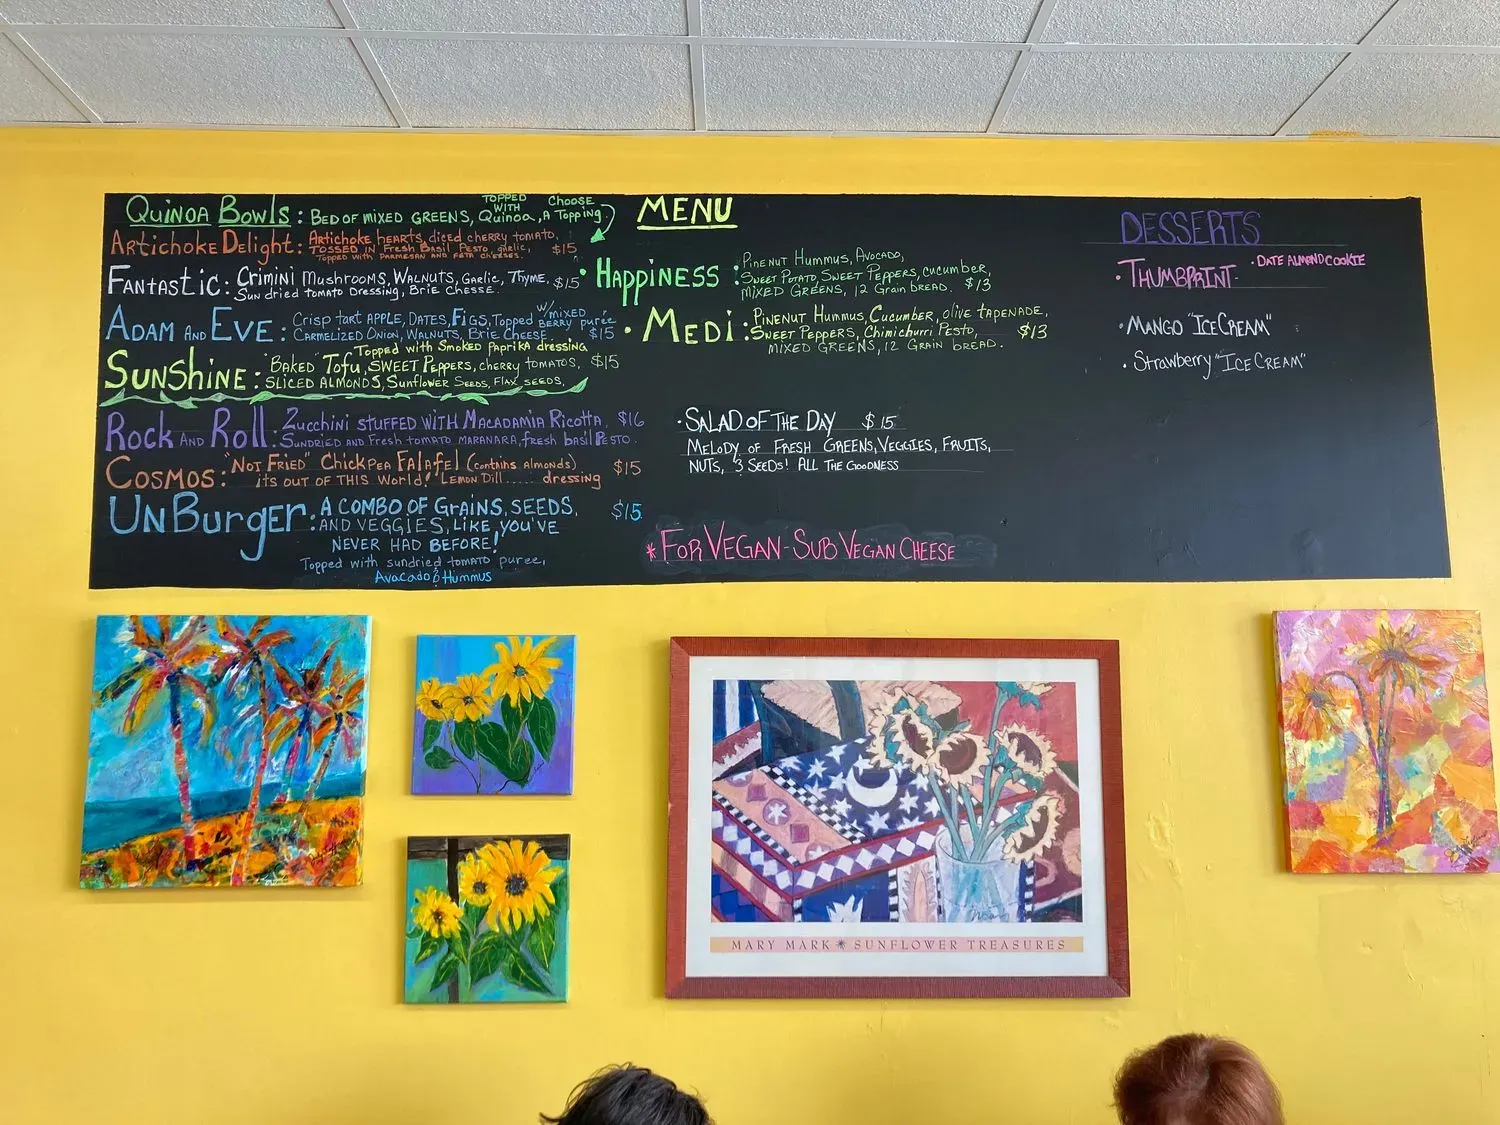 Quinoa Bowls: BED OF MIXED GREENS, Quinoa, A Topping.
TOPPED WITH
Choose
Artichoke Delight: Artichoke hearts, diced cherry tomato,
TOSSED IN Fresh Basil Pesto, garlic, $15
Topped with PARMESAN AND FETA CHEESES.
Fantastic: Crimini Mushrooms, Walnuts, Garlic, Thyme, $15
Sun dried tomato Dressing, Brie Chesse.
Adam and Eve: Crisp tart APPLE, DATES, Figs, Topped w/mixed Berry purée
Carmelized Onion, Walnuts, Brie Cheese $15
Topped with Smoked Paprika dressing
Sunshine: "Baked" Tofu, Sweet Peppers, cherry tomatos, $15
SLICED ALMONDS, Sunflower Seeds, Flax seeds,
Rock and Roll: Zucchini stuffed with Macadamia Ricotta, $16
Sundried and Fresh tomato Maranara, fresh basil Pesto.
Cosmos: "Not Fried" Chickpea Falafel (contains almonds) $15
its out of this World! Lemon Dill..... dressing
UnBurger: A combo of Grains, Seeds, $15
and veggies, like you've
never had before!
Topped with sundried tomato puree,
Avocado & Hummus
MENU
• Happiness: Pinenut Hummus, Avocado,
Sweet Potato, Sweet Peppers, cucumber,
Mixed Greens, 12 Grain bread. $13
• Medi: Pinenut Hummus, Cucumber, olive tapenade,
Sweet Peppers, Chimichurri Pesto, $13
mixed greens, 12 Grain bread.
• Salad of the Day $15
Melody of Fresh Greens, Veggies, Fruits,
Nuts, 3 Seeds! All the Goodness
* For Vegan - Sub Vegan Cheese
DESSERTS
• Thumbprint - • Date Almond Cookie
• Mango "Ice Cream"
• Strawberry "Ice Cream"
MARY MARK * SUNFLOWER TREASURES